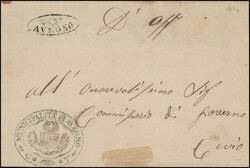 AVEGNO
D' Off
All' onorevolissimo Sig
Commissario di Governo
Cevio
MUNICIPALITÀ DI AVEGNO